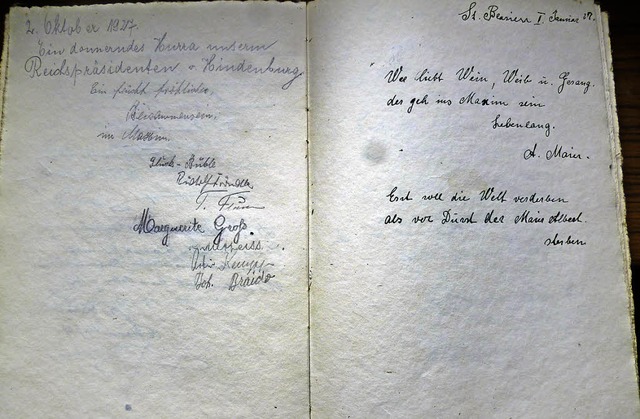 2. Oktober 1927.
Ein donnerndes Hurra unserm
Reichspräsidenten v. Hindenburg.
Ein feucht fröhliches
Beisammensein,
im Maxim.
Glück-Buble
Marguerite Groß.
Joh. Braido
St. Januar
Wer liebt Wein, Weib u. Gesang.
der geh ins Maxim sein
Lebenlang.
A. Maier.
Erst soll die Welt verderben
als vor Durst der Maier Albert
sterben